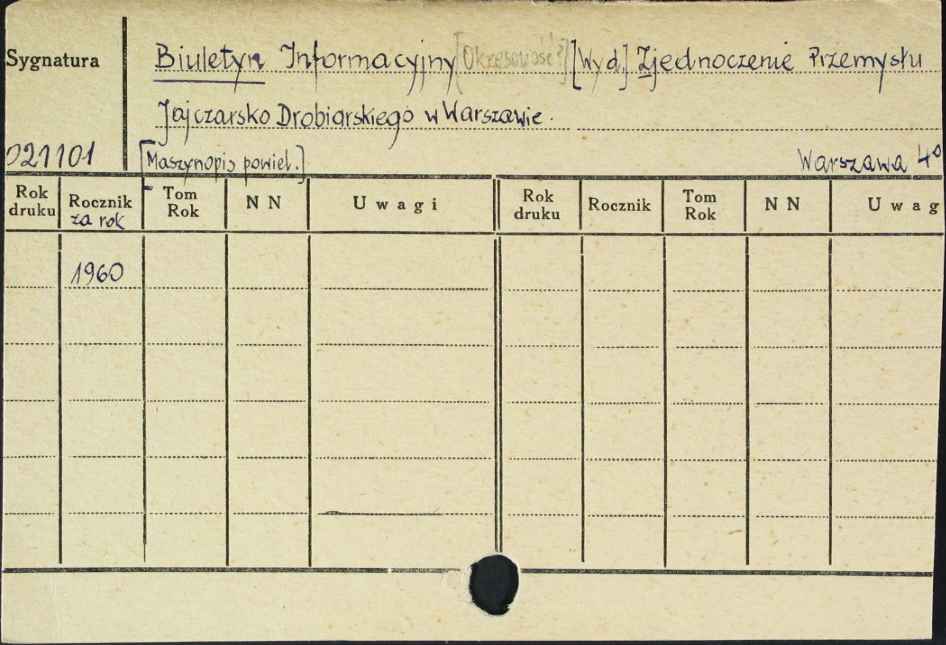 Sygnatura
Biuletyn Informacyjny [Okresowość?] [Wyd.] Zjednoczenie Przemysłu
Jajczarsko Drobiarskiego w Warszawie.
021101 [Maszynopis powiel.] Warszawa 4º
Rok druku Rocznik za rok Tom Rok N N Uwagi Rok druku Rocznik Tom Rok N N Uwag
1960